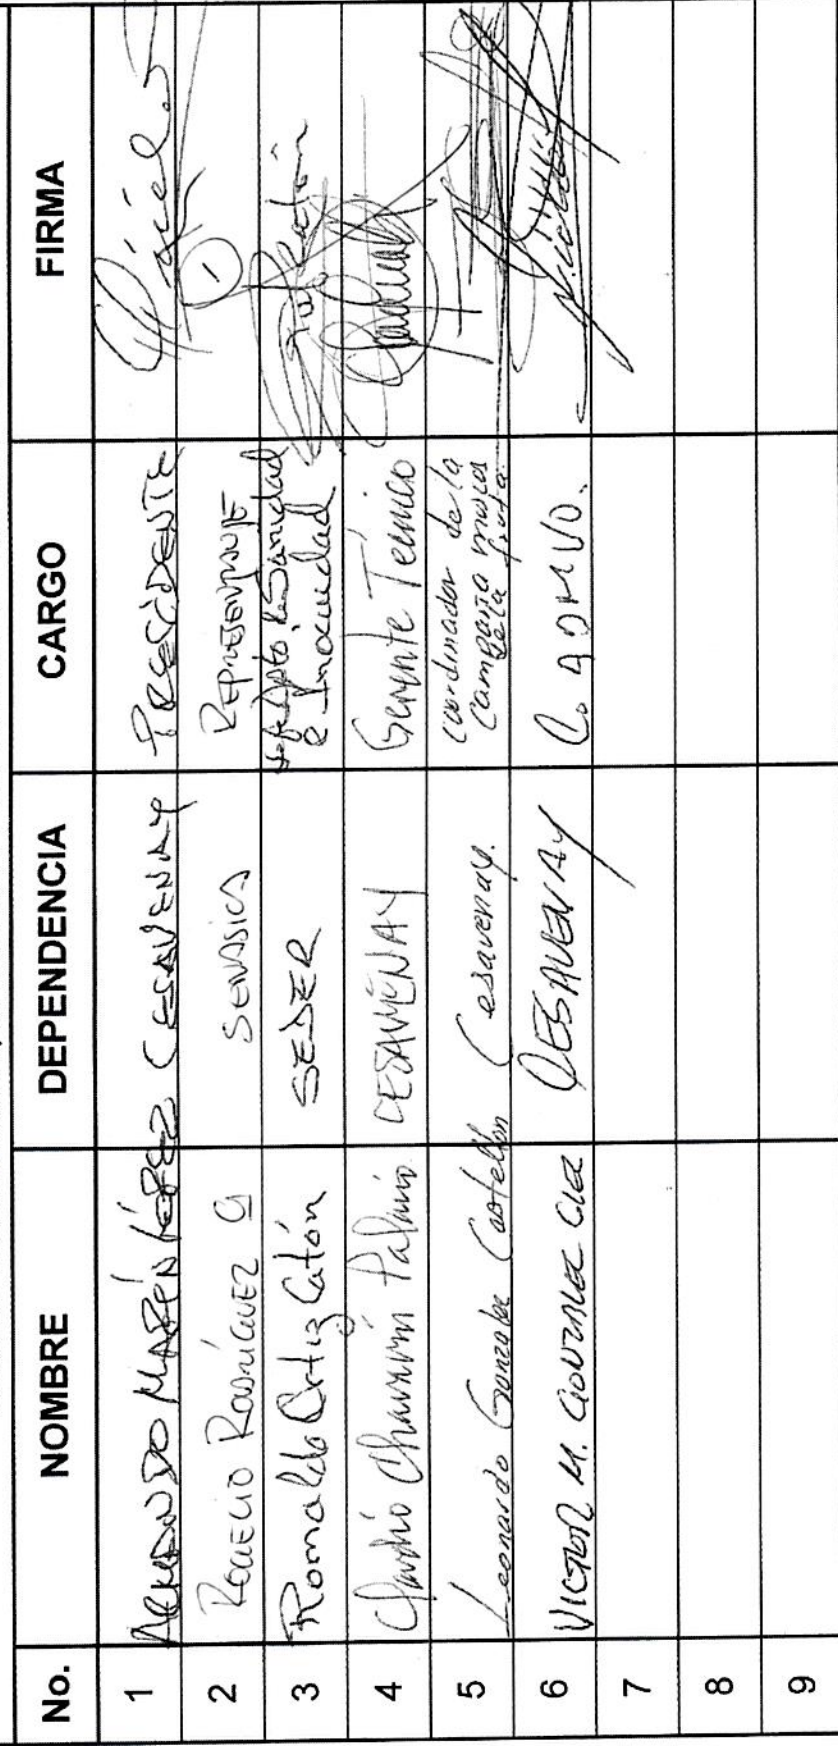 No. NOMBRE DEPENDENCIA CARGO FIRMA
1 ARMANDO MARÍN LÓPEZ CESAVENAY PRESIDENTE
2 ROGELIO RODRÍGUEZ G SENASICA REPRESENTANTE
3 Romaldo Ortiz Catón SEDER Jefe Dpto. de Sanidad
e Inocuidad
4 Chavarín Palmio CESAVENAY Gerente Técnico
5 Leonardo Gonzalez Castellón Cesavenay. Coordinador de la
Campaña mosca
de la fruta.
6 VICTOR M. GONZALEZ CESAVENAY C. ADMVO.
7
8
9